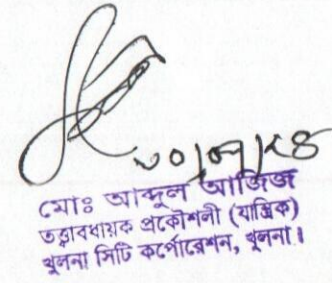 ৩০/০৭/২৪
মোঃ আব্দুল আজিজ
তত্ত্বাবধায়ক প্রকৌশলী (যান্ত্রিক)
খুলনা সিটি কর্পোরেশন, খুলনা।